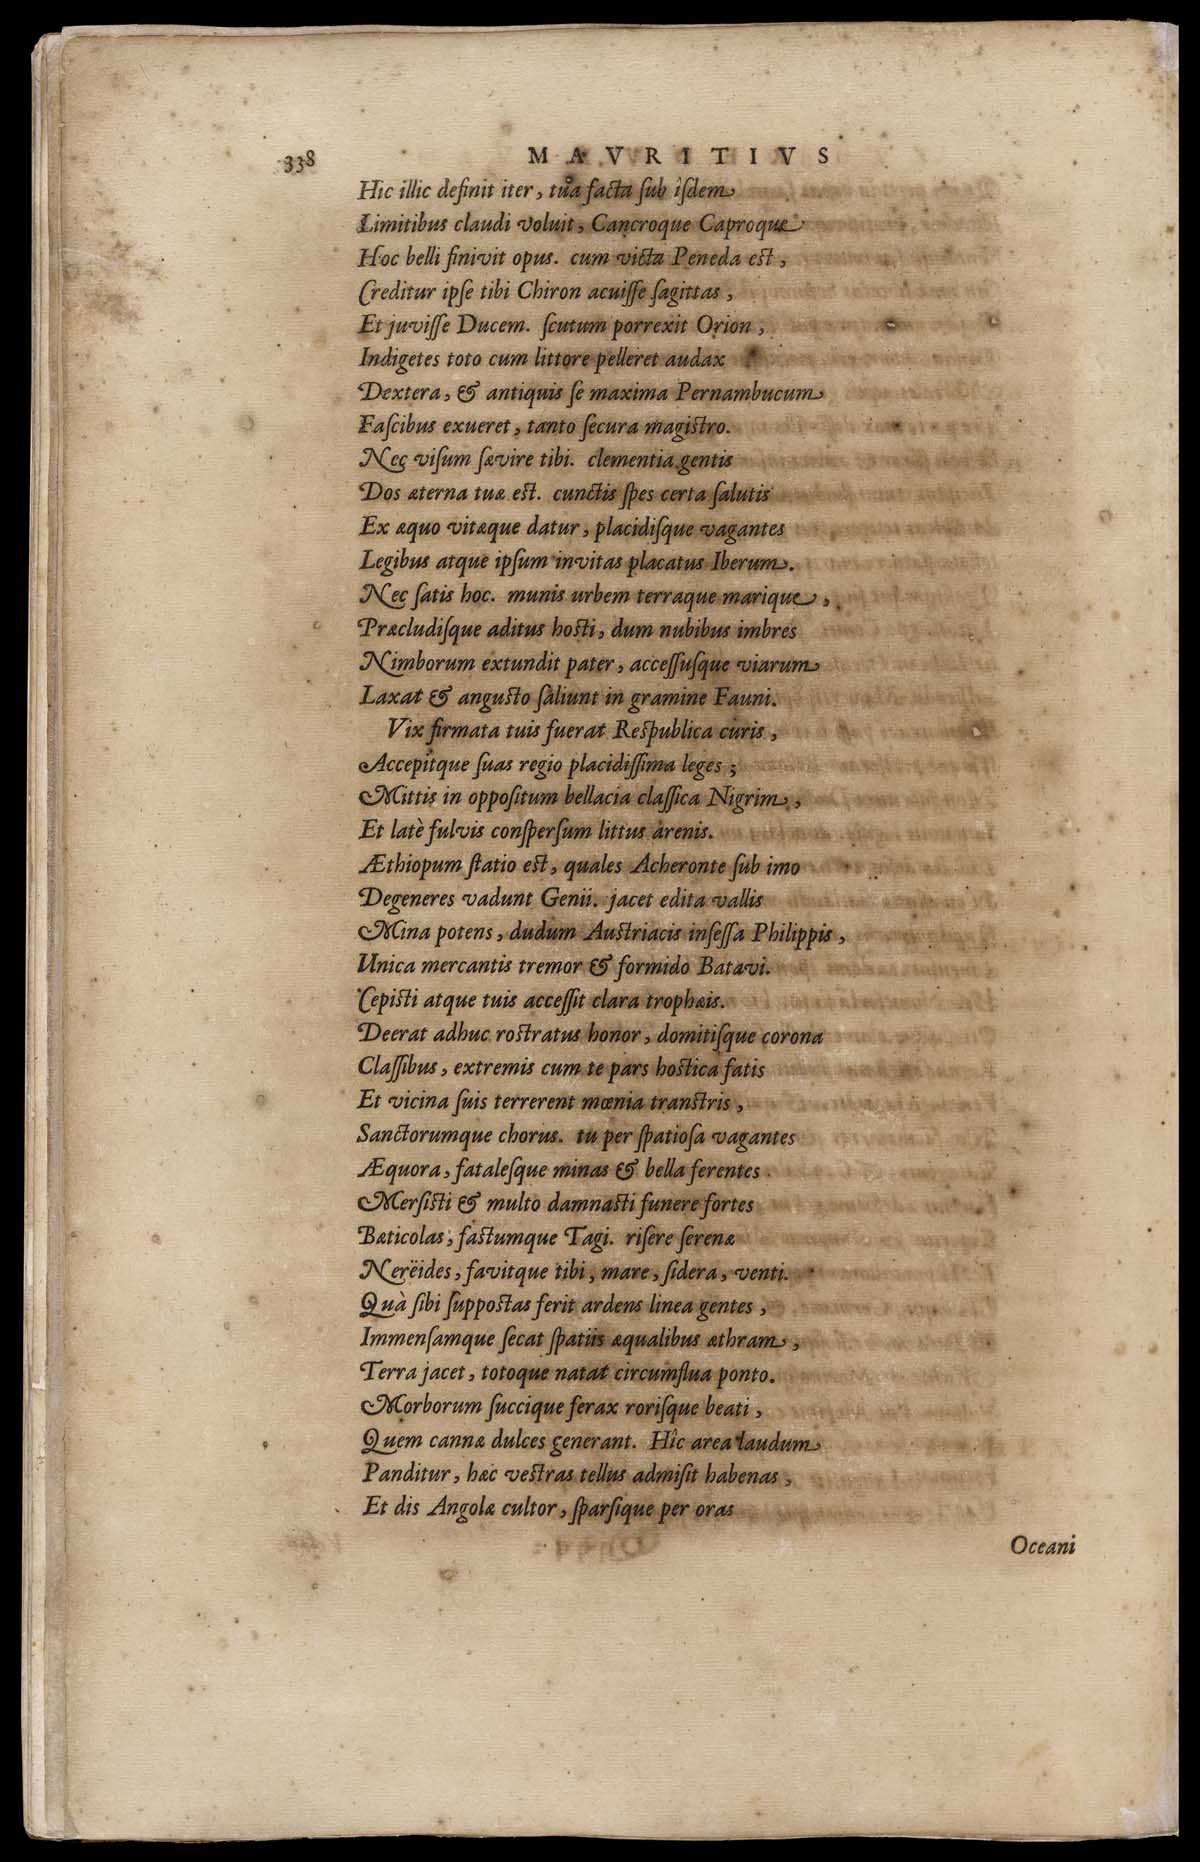 338
MAVRITIVS
Hic illic definit iter, tua facta ſub iſdem
Limitibus claudi voluit, Cancroque Caproque
Hoc belli finivit opus. cum victa Peneda est,
Creditur ipſe tibi Chiron acuiſſe ſagittas,
Et juviſſe Ducem. ſcutum porrexit Orion,
Indigetes toto cum littore pelleret audax
Dextera, & antiquis ſe maxima Pernambucum
Faſcibus exueret, tanto ſecura magiſtro.
Nec viſum ſævire tibi. clementia gentis
Dos æterna tuæ eſt. cunctis ſpes certa ſalutis
Ex æquo vitæque datur, placidiſque vagantes
Legibus atque ipſum invitas placatus Iberum.
Nec ſatis hoc. munis urbem terraque marique,
Præcludiſque aditus hoſti, dum nubibus imbres
Nimborum extundit pater, acceſſuſque viarum
Laxat & anguſto ſaliunt in gramine Fauni.
Vix firmata tuis fuerat Reſpublica curis,
Accepitque ſuas regio placidiſſima leges;
Mittis in oppoſitum bellacia claſſica Nigrim,
Et latè fulvis conſperſum littus arenis.
Æthiopum ſtatio eſt, quales Acheronte ſub imo
Degeneres vadunt Genii. jacet edita vallis
Mina potens, dudum Auſtriacis inſeſſa Philippis,
Unica mercantis tremor & formido Batavi.
Cepiſti atque tuis acceſſit clara trophæis.
Deerat adhuc roſtratus honor, domitiſque corona
Claſſibus, extremis cum te pars hoſtica fatis
Et vicina ſuis terrerent mœnia tranſtris,
Sanctorumque chorus. tu per ſpatioſa vagantes
Æquora, fataleſque minas & bella ferentes
Merſiſti & multo damnaſti funere fortes
Bæticolas, faſtumque Tagi. riſere ſerenæ
Nerëides, favitque tibi, mare, ſidera, venti.
Quà ſibi ſuppoſtas ferit ardens linea gentes,
Immenſamque ſecat ſpatiis æqualibus æthram,
Terra jacet, totoque natat circumflua ponto.
Morborum ſuccique ferax roriſque beati,
Quem cannæ dulces generant. Hîc area laudum
Panditur, hæc veſtras tellus admiſit habenas,
Et dis Angolæ cultor, ſparſique per oras
Oceani